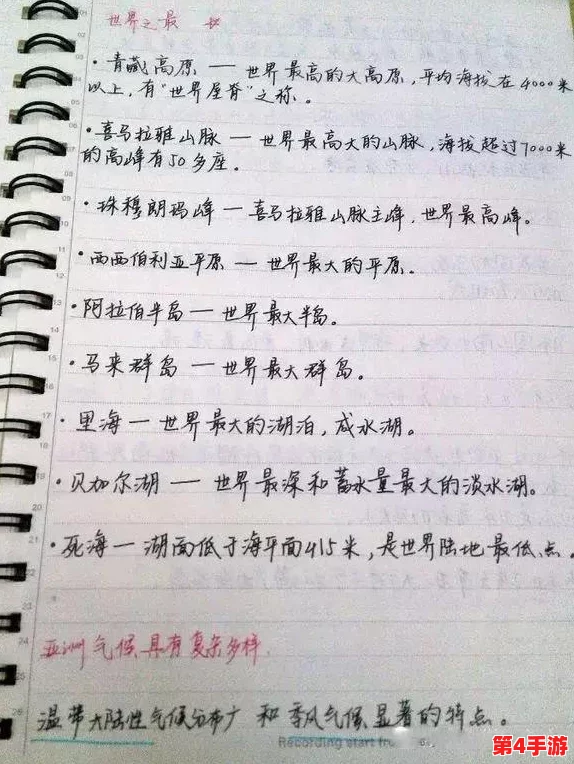 世界之最
·青藏高原 — 世界最高的大高原,平均海拔在4000米
以上,有"世界屋脊"之称。
·喜马拉雅山脉 — 世界最高大的山脉,海拔超过7000米
的高峰有50多座。
·珠穆朗玛峰 — 喜马拉雅山脉主峰,世界最高峰。
·西西伯利亚平原 — 世界最大的平原.
·阿拉伯半岛 — 世界最大半岛。
·马来群岛 — 世界最大群岛。
·里海 — 世界最大的湖泊,咸水湖。
·贝加尔湖 — 世界最深和蓄水量最大的淡水湖。
·死海 — 湖面低于海平面415米,是世界陆地最低点。
亚洲气候具有复杂多样.
温带大陆性气候分布广和季风气候显著的特点。
Recording start
第4手游